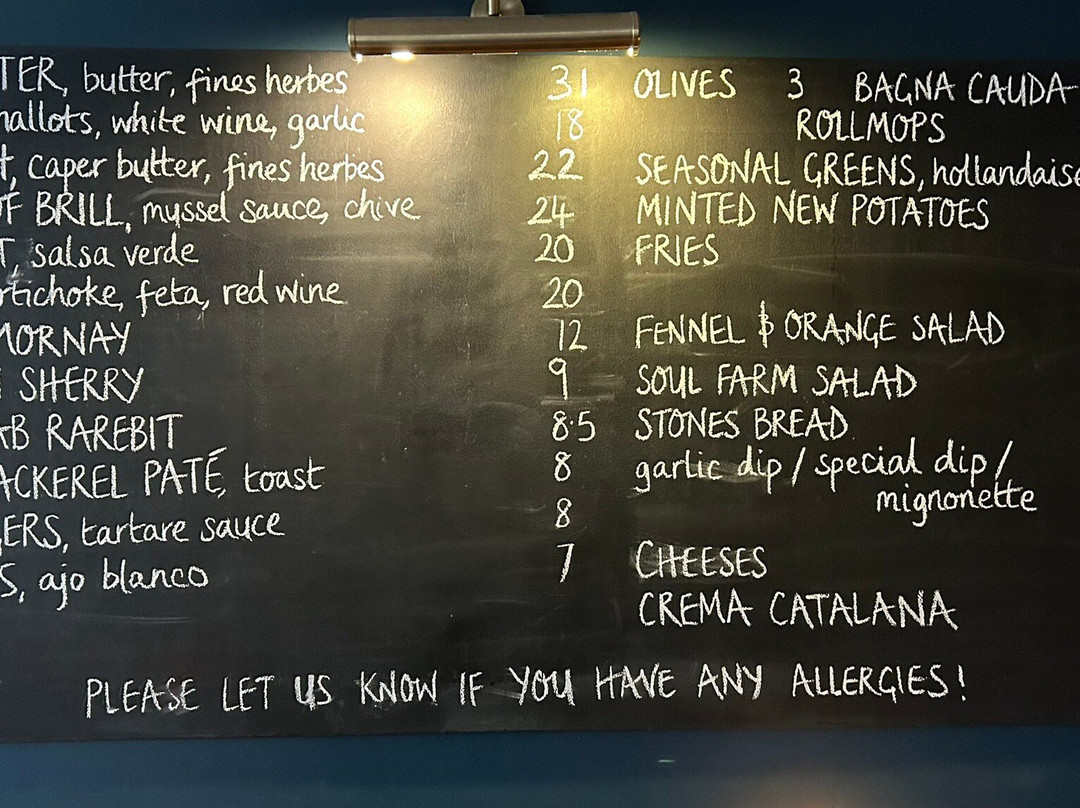 TER, butter, fines herbes 31
hallots, white wine, garlic 18
t, caper butter, fines herbes 22
OF BRILL, mussel sauce, chive 24
T, salsa verde 20
rtichoke, feta, red wine 20
MORNAY 12
SHERRY 9
AB RAREBIT 8.5
ACKEREL PATÉ, toast 8
ERS, tartare sauce 8
S, ajo blanco 7
OLIVES 3 BAGNA CAUDA
ROLLMOPS
SEASONAL GREENS, hollandaise
MINTED NEW POTATOES
FRIES
FENNEL & ORANGE SALAD
SOUL FARM SALAD
STONES BREAD
garlic dip / special dip /
mignonette
CHEESES
CREMA CATALANA
PLEASE LET US KNOW IF YOU HAVE ANY ALLERGIES!